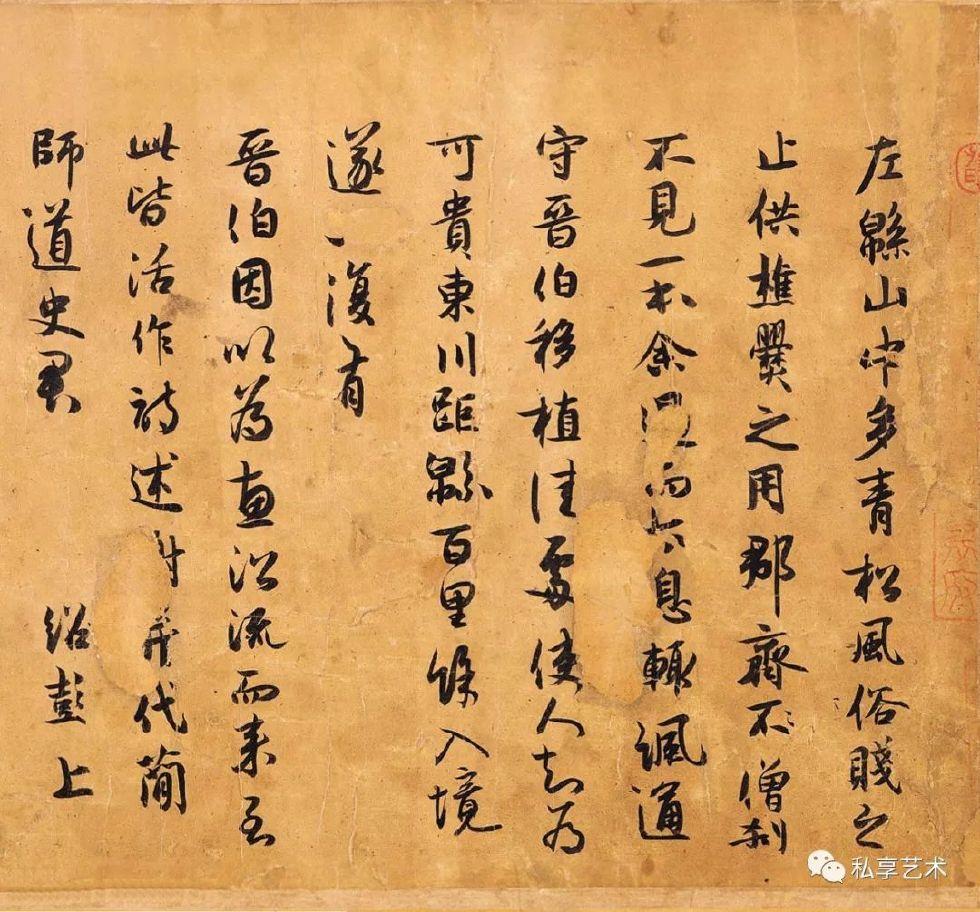 左緜山中多青松風俗賤之
止供樵爨之用郡齋不僧刹
不見一本余過而太息輒諷通
守晉伯移植佳處使人知為
可貴東川距緜百里餘入境
遂不復有
晉伯因以為惠沿流而來至
此皆活作詩述謝 并代簡
師道史君 紹彭上
私享艺术